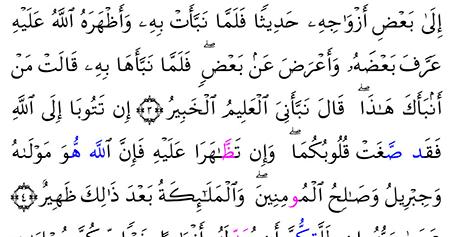 إِلَىٰ بَعْضِ أَزْوَٰجِهِۦ حَدِيثًا فَلَمَّا نَبَّأَتْ بِهِۦ وَأَظْهَرَهُ ٱللَّهُ عَلَيْهِ
عَرَّفَ بَعْضَهُۥ وَأَعْرَضَ عَنۢ بَعْضٍۖ فَلَمَّا نَبَّأَهَا بِهِۦ قَالَتْ مَنْ
أَنۢبَأَكَ هَٰذَاۖ قَالَ نَبَّأَنِيَ ٱلْعَلِيمُ ٱلْخَبِيرُ ﴿٣﴾ إِن تَتُوبَا إِلَى ٱللَّهِ
فَقَد صَّغَتْ قُلُوبُكُمَاۖ وَإِن تَظَّٰهَرَا عَلَيْهِ فَإِنَّ ٱللَّه هُّوَ مَوْلَىٰهُ
وَجِبْرِيلُ وَصَٰلِحُ ٱلْمُومِنِينَۖ وَٱلْمَلَٰٓئِكَةُ بَعْدَ ذَٰلِكَ ظَهِيرٌ ﴿٤﴾